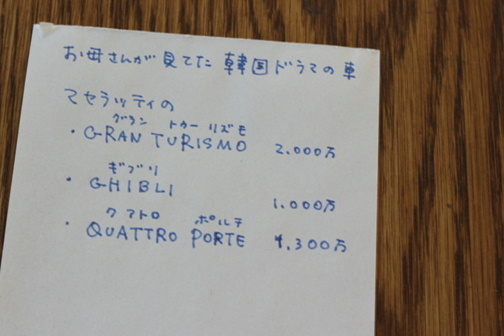 お母さんが見てた韓国ドラマの車
マセラッティの
グラン トゥーリズモ
・GRAN TURISMO 2.000万
ギブリ
・GHIBLI 1.000万
クアトロ ポルテ
・QUATTRO PORTE 1.300万